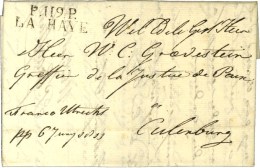 P.119.P.
LA HAYE
Wel Edele Gest Heer
de Heer W. C. Grovestein
Greffier de la Justice de Paix
Culenburg
Franco Utrecht